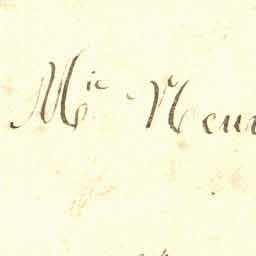 Mic Neur